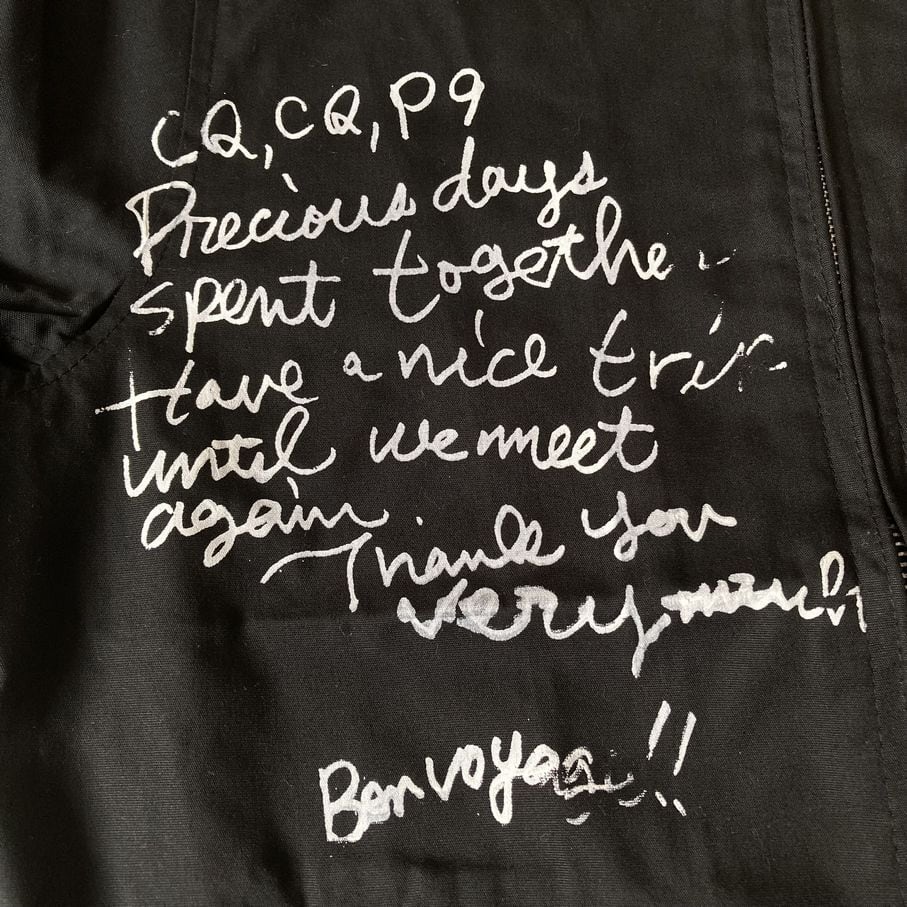 CQ, CQ, P9
Precious days
spent together
Have a nice trip
until we meet
again Thank you
very much
Bon voyage!!